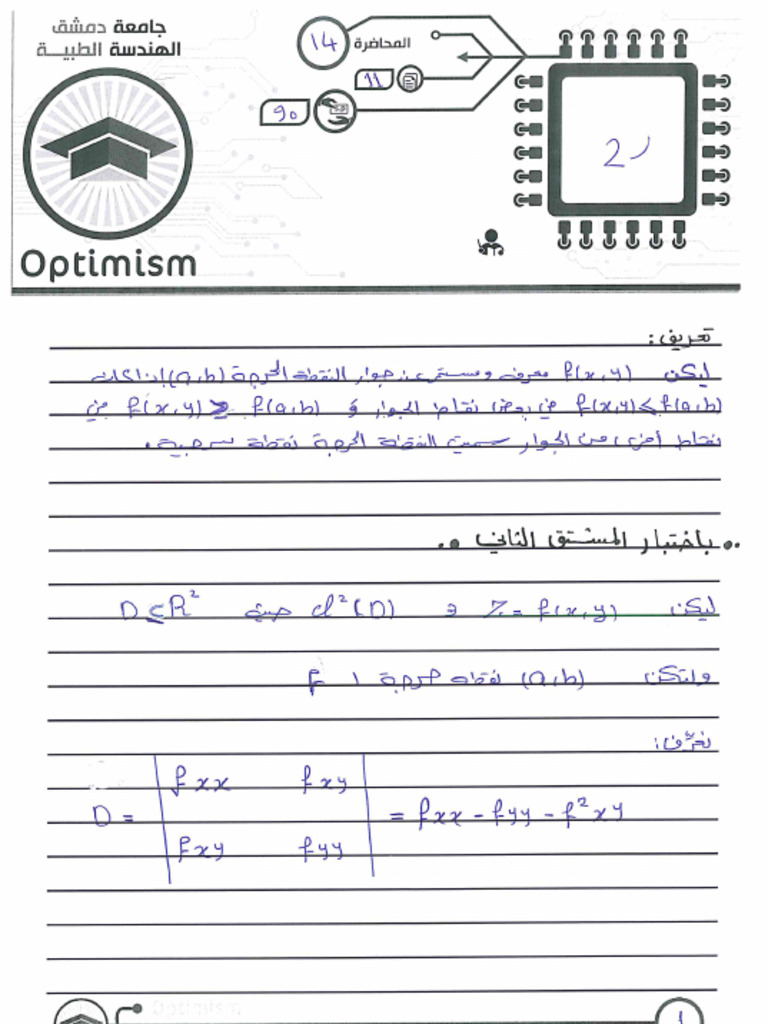 جامعة دمشق
الهندسة الطبية
المحاضرة 14
11
90
2ر
Optimism
تعريف:
ليكن f(x,y) معرف ومستمر عند جوار النقطة الحرجة (a,b) إذا كانت
f(x,y)≤f(a,b) في بعض نقاط الجوار و f(x,y) ≥ f(a,b) في
نقاط أخرى من الجوار سميت النقطة الحرجة نقطة سرجية.
باختبار المشتق الثاني
ليكن z = f(x,y) ∈ C²(D) حيث D⊆R²
ولتكن (a,b) نقطة حرجة لـ f
نعرّف:
fxx fxy
D = = fxx - fyy - f²xy
fxy fyy
Optimism
1